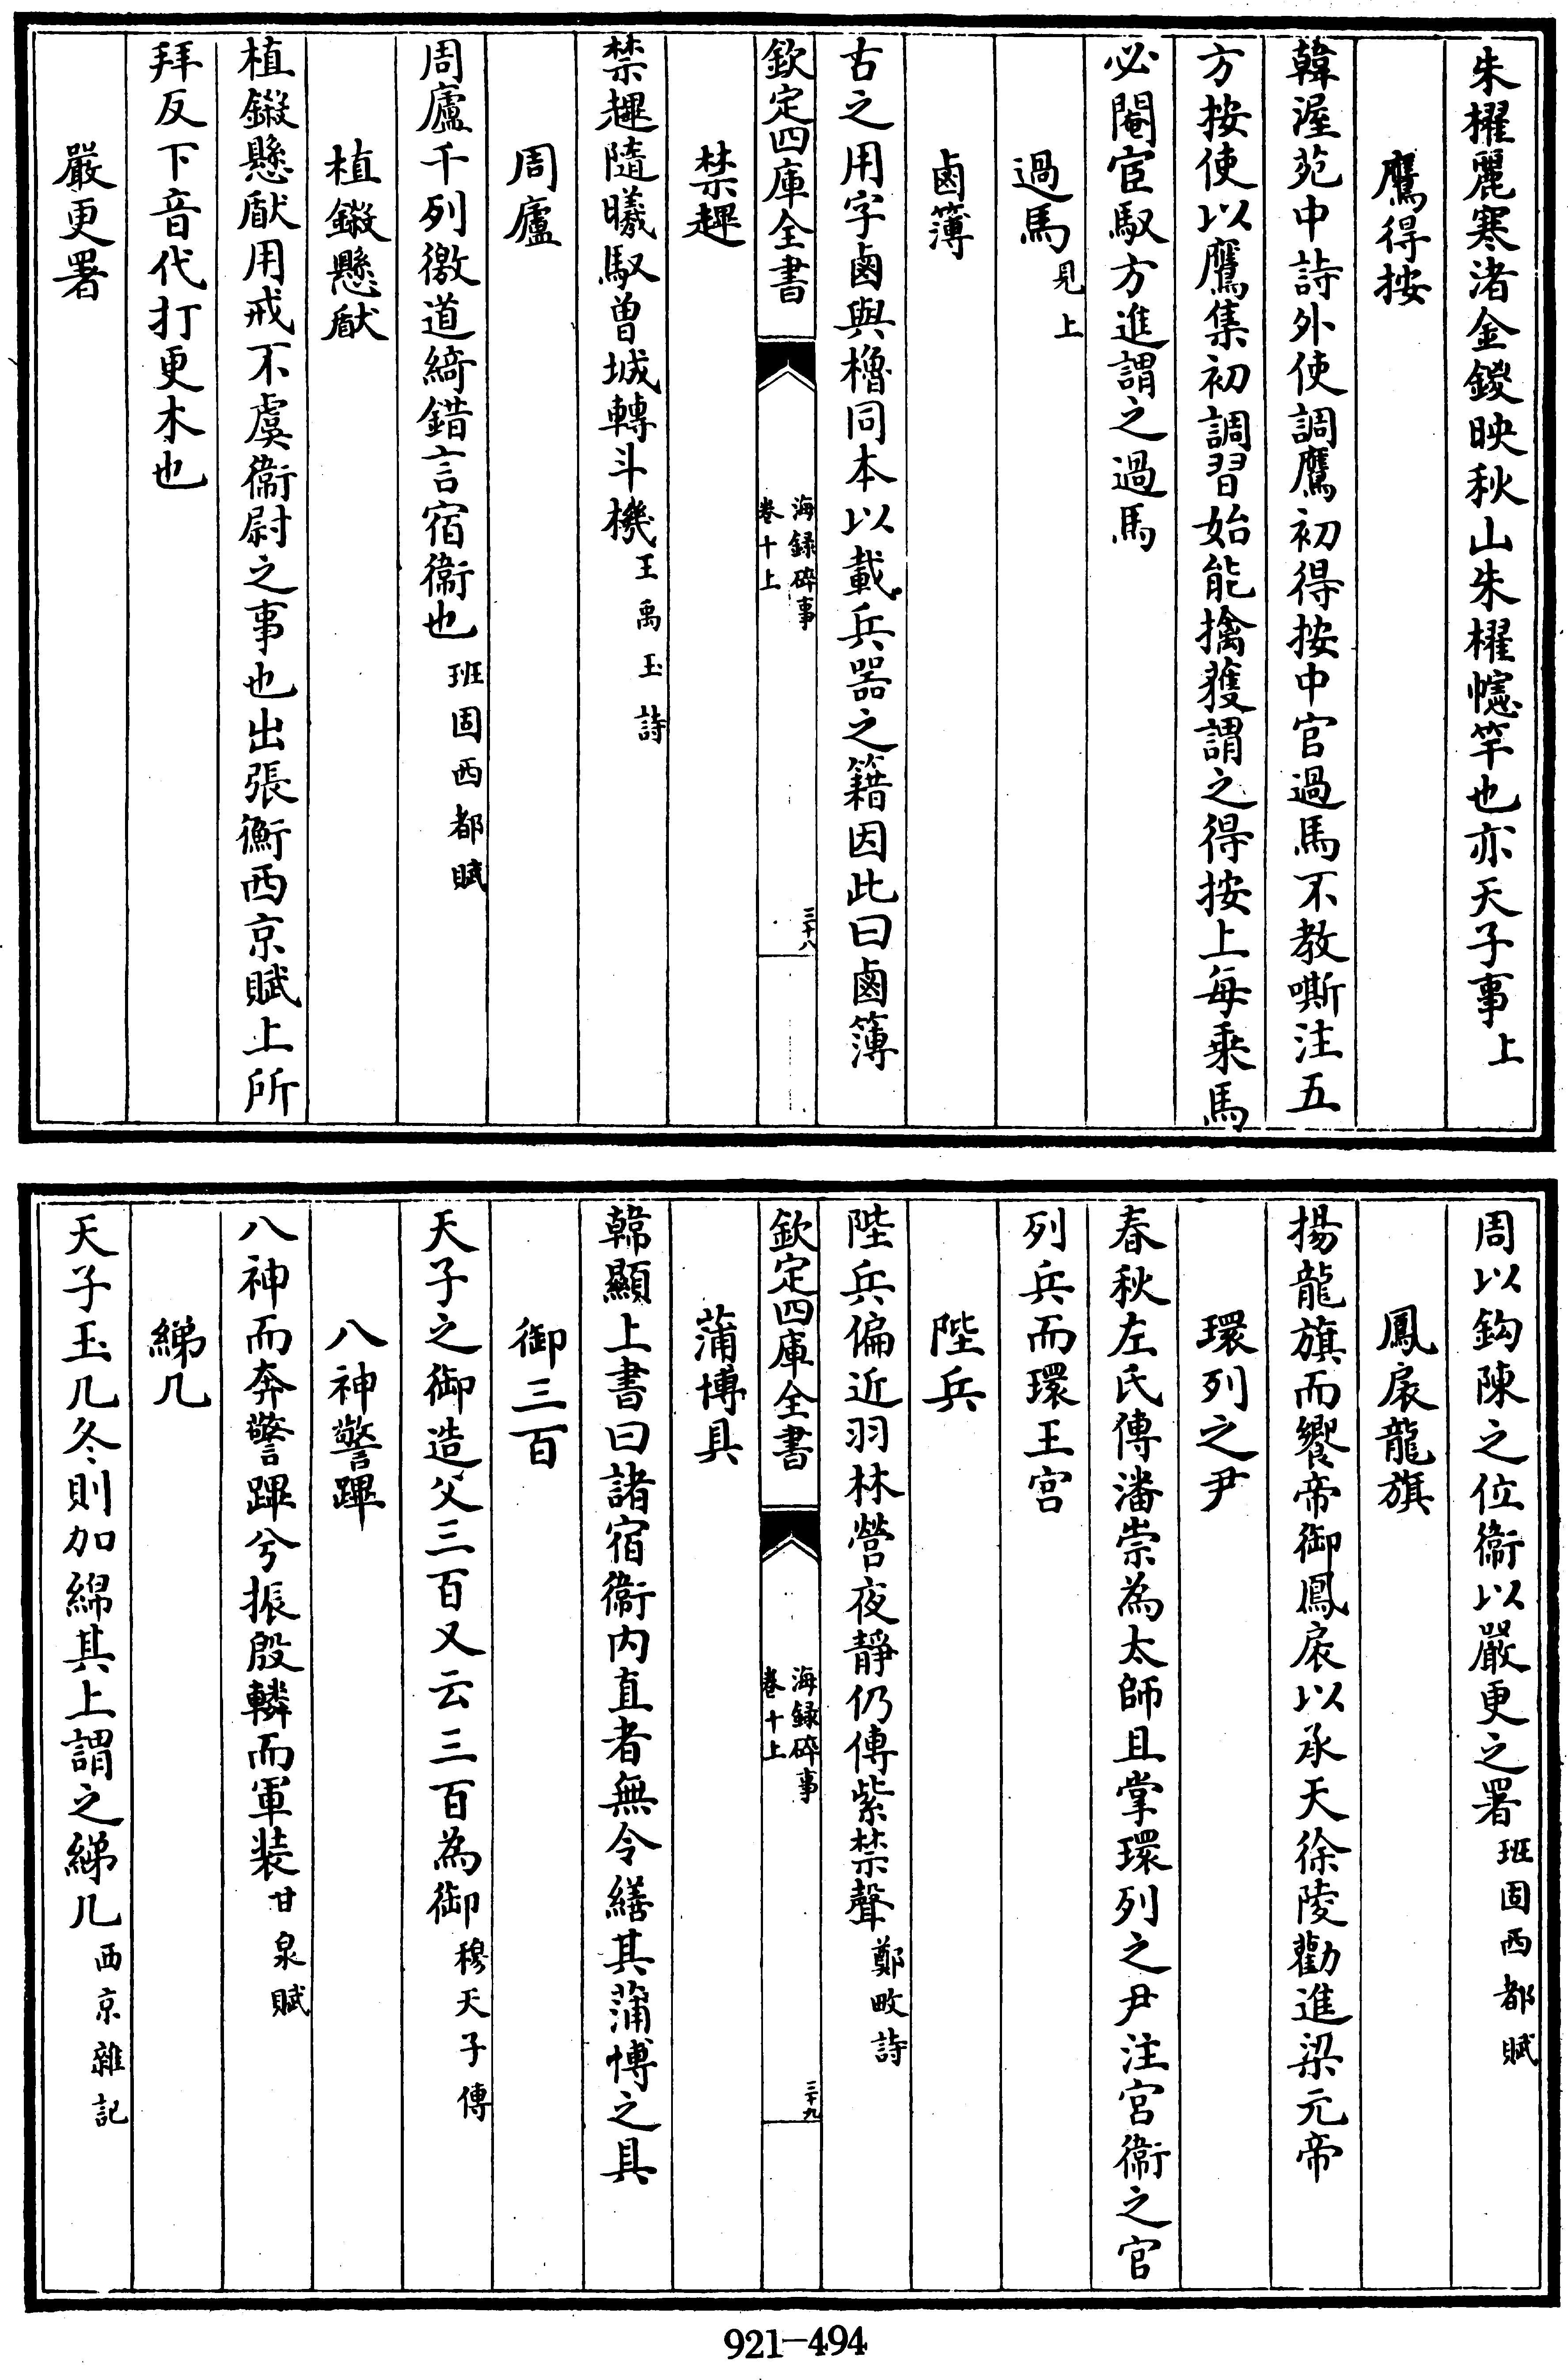 朱櫂麗寒渚金鍐映秋山朱櫂幰竿也亦天子事上
鷹得按
韓渥苑中詩外使調鷹初得按中官過馬不教嘶注五
方按使以鷹集初調習始能擒獲謂之得按上每乘馬
必閹宦馭方進謂之過馬
過馬見上
鹵簿
古之用字鹵與櫓同本以載兵器之籍因此曰鹵簿
欽定四庫全書
海録碎事
卷十上
三十八
禁趩
禁趩隨曦馭曽城轉斗機王禹玉詩
周廬
周廬千列徼道綺錯言宿衞也班固西都賦
植鎩懸瞂
植鎩懸瞂用戒不虞衞尉之事也出張衡西京賦上所
拜反下音伐打更木也
嚴更署
周以鈎陳之位衞以嚴更之署班固西都賦
鳳扆龍旗
揚龍旗而饗帝御鳳扆以承天徐陵勸進梁元帝
環列之尹
春秋左氏傳潘崇為太師且掌環列之尹注宮衞之官
列兵而環王宮
陛兵
陛兵偏近羽林營夜靜仍傳紫禁聲鄭畋詩
欽定四庫全書
海録碎事
卷十上
三十九
蒲博具
韓顯上書曰諸宿衞内直者無令繕其蒲博之具
御三百
天子之御造父三百又云三百為御穆天子傳
八神警蹕
八神而奔警蹕兮振殷轔而軍装甘泉賦
綈几
天子玉几冬則加綿其上謂之綈几西京雜記
921-494